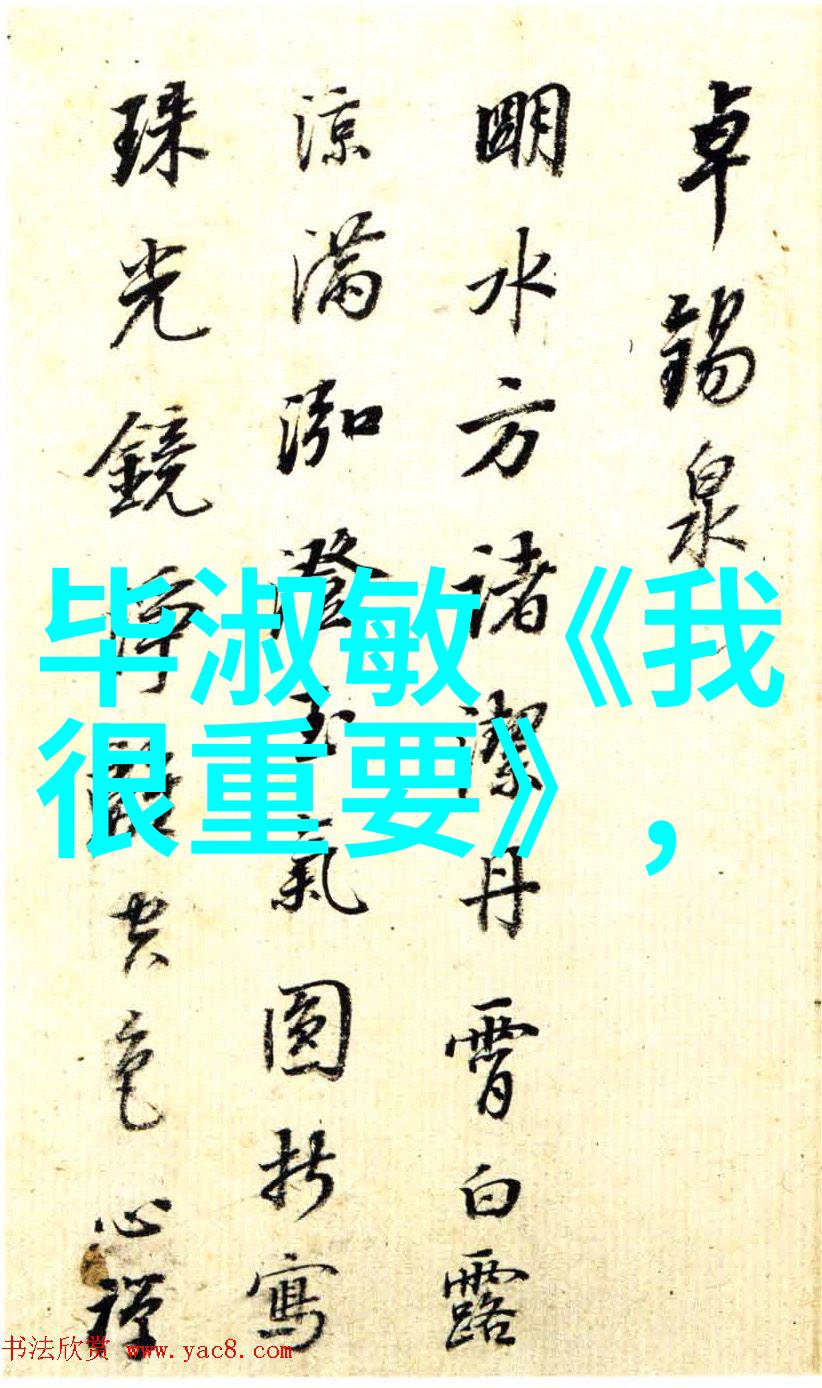 卓錫泉
朙水方諸潔丹霄白露
涼滿泓澄玉氣圓折寫
珠光鏡淨空色心禪
毕淑敏《我
很重要》，
书法欣赏 www.yac8.com